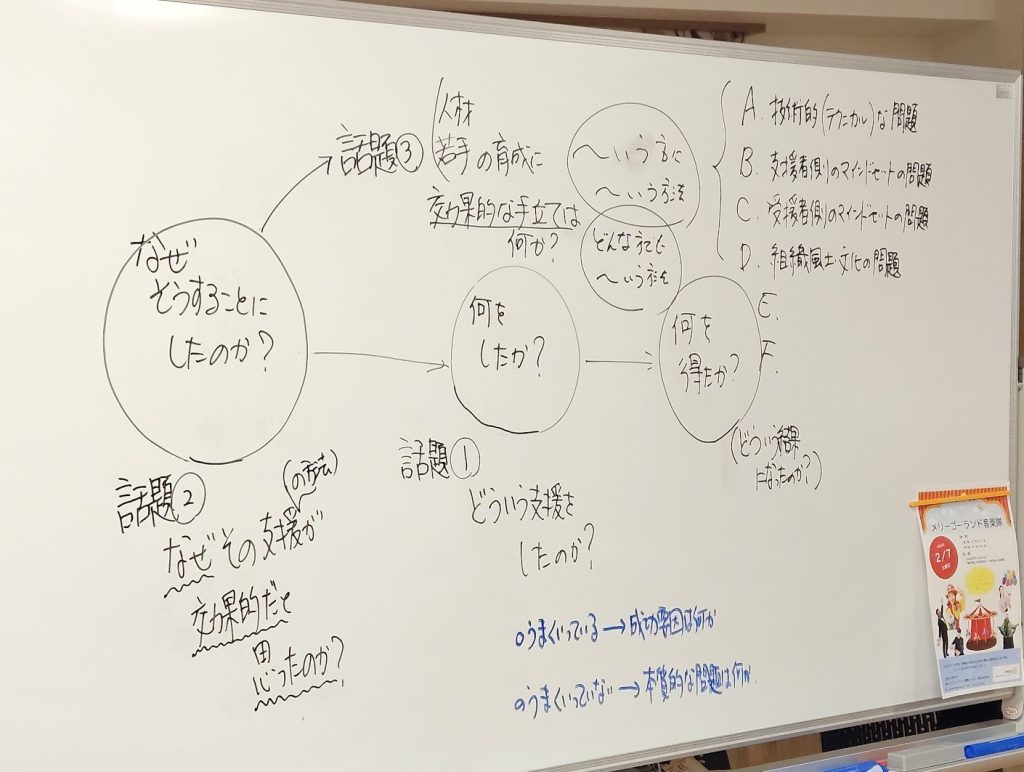 話題③
人材
若手の育成に
効果的な手立ては
何か?
〜いう方に
〜いう方法
どんな方に
〜いう方法
A. 技術的(テクニカル)な問題
B. 支援者側のマインドセットの問題
C. 受援者側のマインドセットの問題
D. 組織風土・文化の問題
E.
F.
なぜ
そうすることに
したのか?
何を
したか?
何を
得たか?
(どういう結果
になったのか?)
話題②
(の方法)
なぜその支援が
効果的だと
思ったのか?
話題①
どういう支援を
したのか?
○うまくいっている→成功要因は何か
○うまくいっていない→本質的な問題は何か.
メリーゴーランド音楽隊
2/7
土曜日